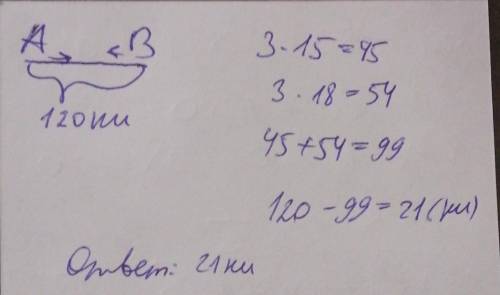 A B
120 км
3 · 15 = 45
3 · 18 = 54
45 + 54 = 99
120 - 99 = 21 (км)
Ответ: 21 км